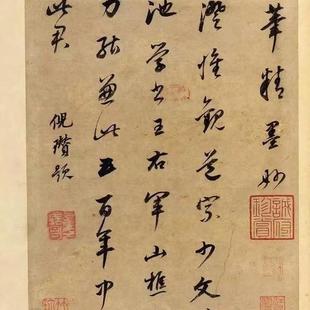 華精墨妙
澄懷觀道宗少文
池學書王右軍山樵
力能兼此五百年中
此君
倪瓚題